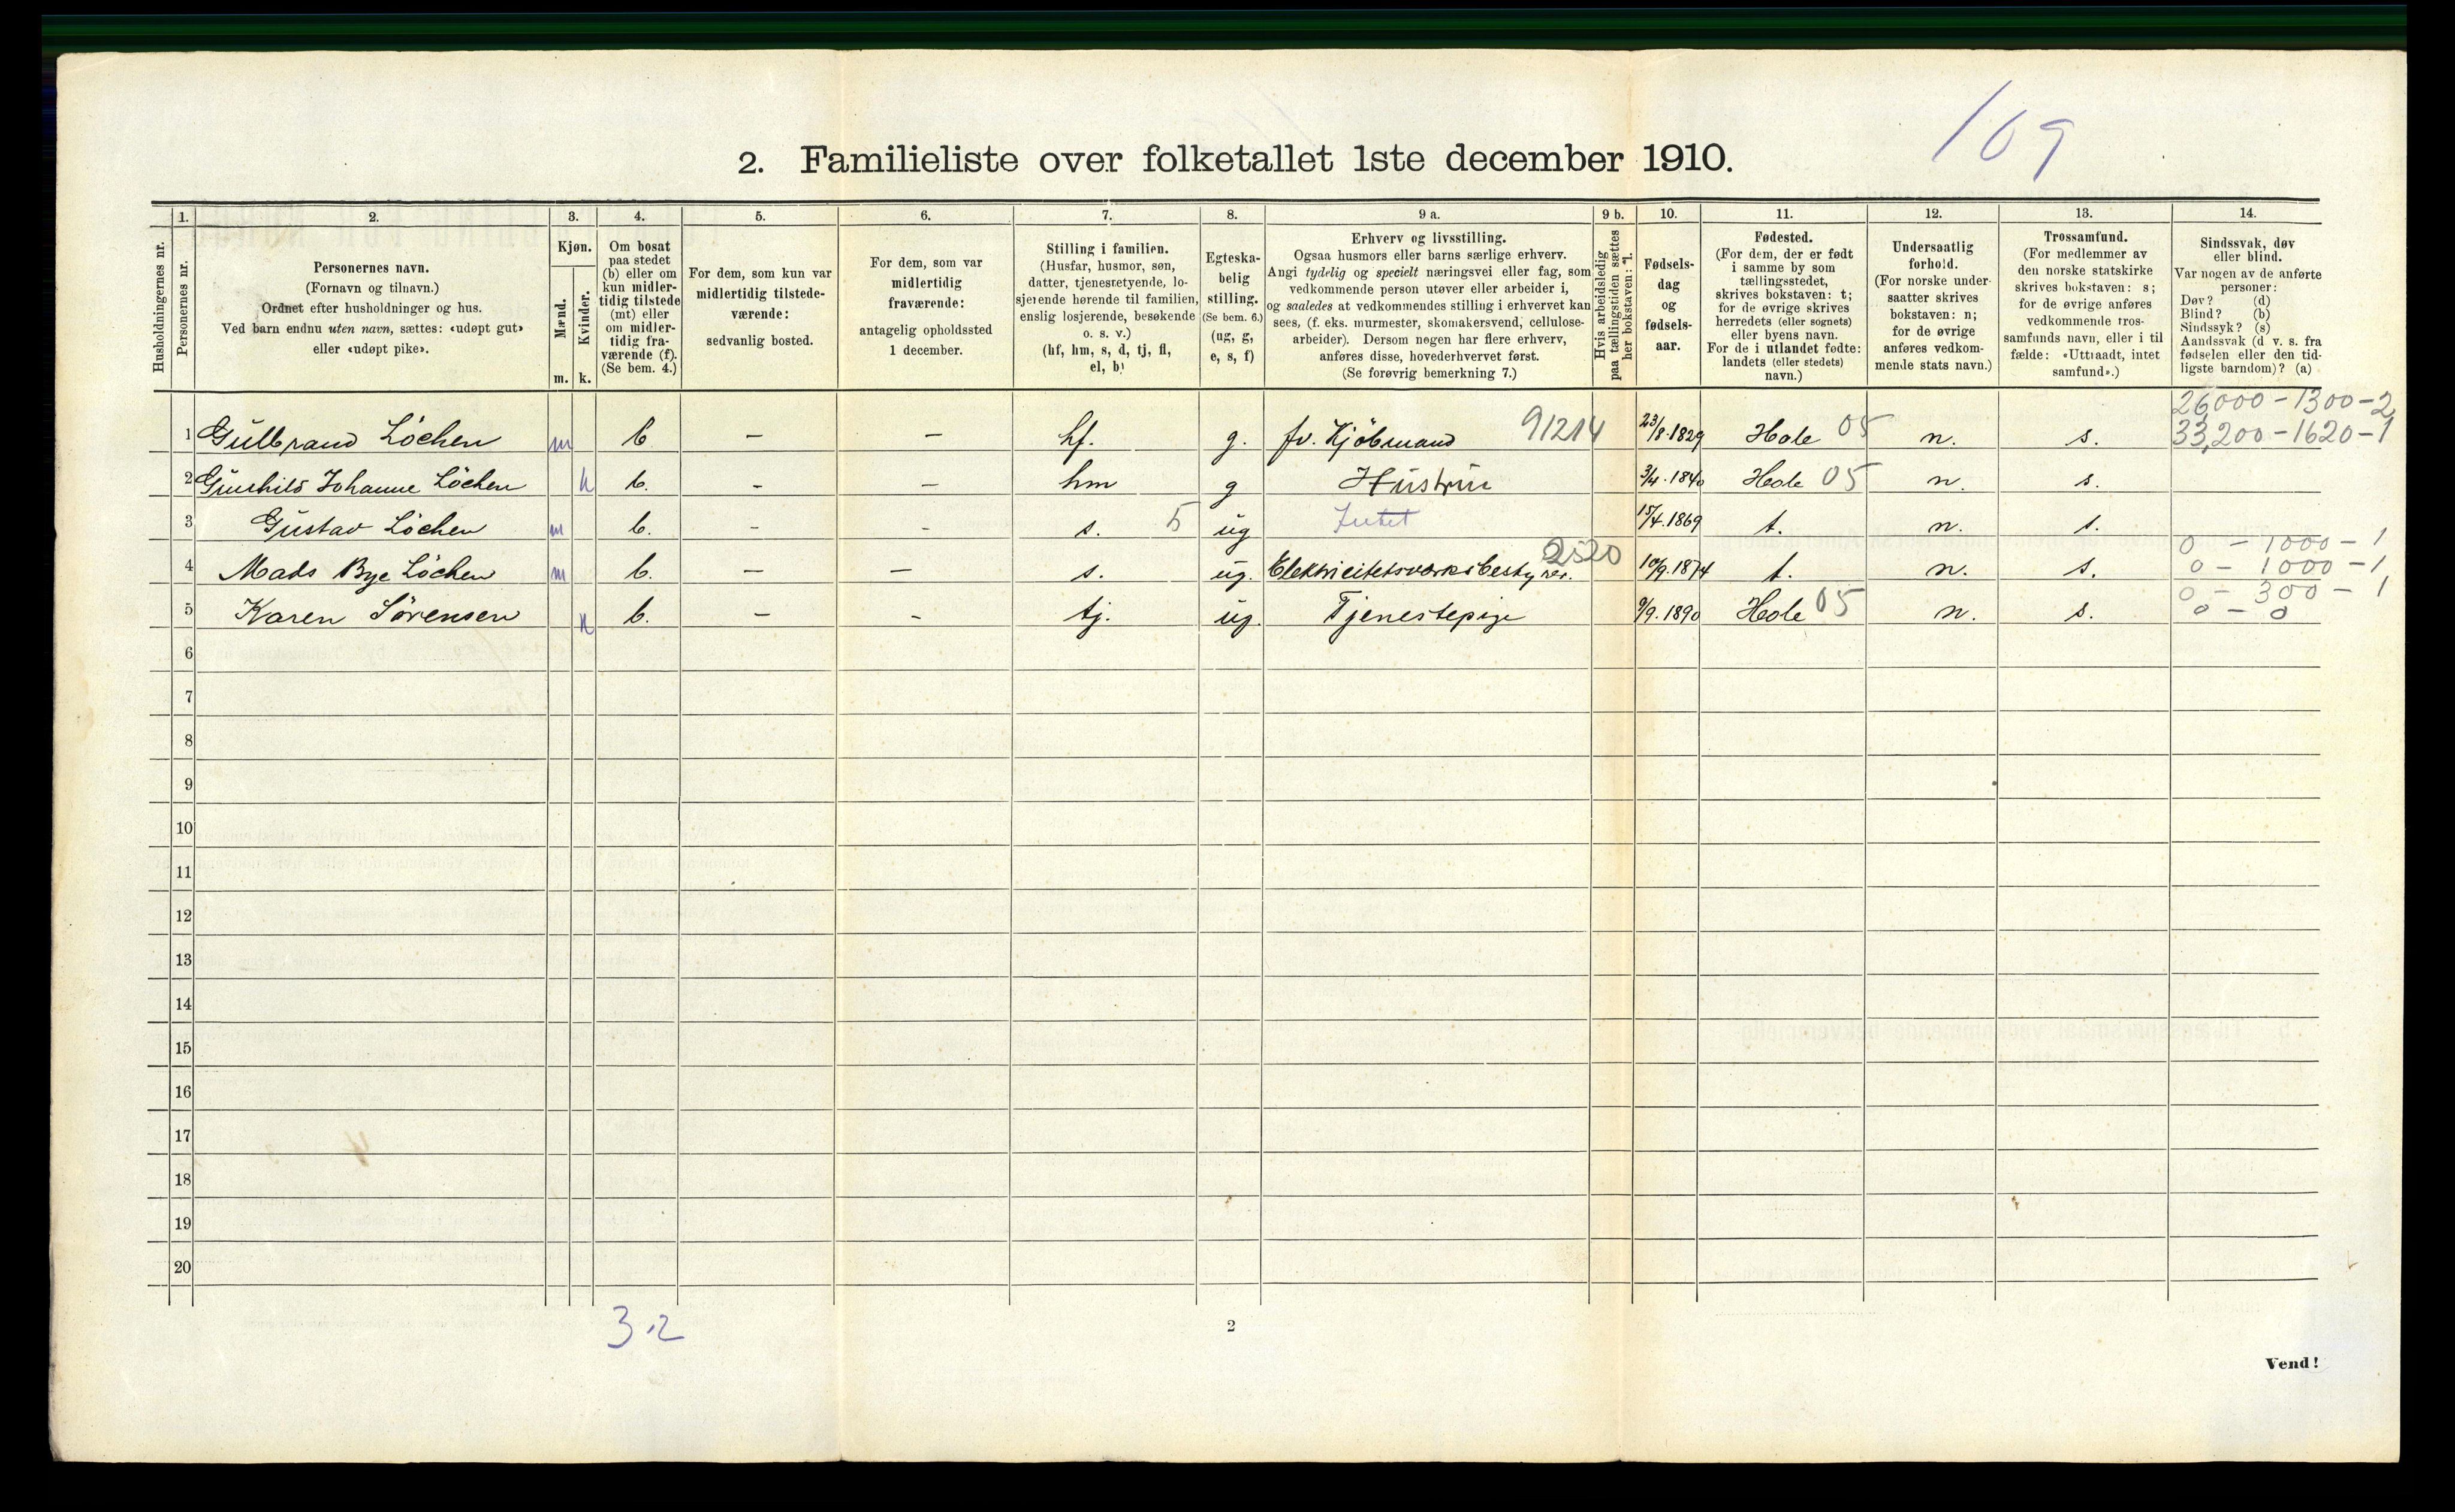 109
2. Familieliste over folketallet 1ste december 1910.
Husholdningernes nr.
1.
Personernes nr.
2.
Personernes navn.
(Fornavn og tilnavn.)
Ordnet efter husholdninger og hus.
Ved barn endnu uten navn, sættes: «udøpt gut»
eller «udøpt pike».
3.
Kjøn.
Mænd.
Kvinder.
m. k.
4.
Om bosat
paa stedet
(b) eller om
kun midler-
tidig tilstede
(mt) eller
om midler-
tidig fra-
værende (f).
(Se bem. 4.)
5.
For dem, som kun var
midlertidig tilstede-
værende:
sedvanlig bosted.
6.
For dem, som var
midlertidig
fraværende:
antagelig opholdssted
1 december.
7.
Stilling i familien.
(Husfar, husmor, søn,
datter, tjenestetyende, lo-
sjerende hørende til familien,
enslig losjerende, besøkende
o. s. v.)
(hf, hm, s, d, tj, fl,
el, b)
8.
Egteska-
belig
stilling.
(Se bem. 6.)
(ug, g,
e, s, f)
9 a.
Erhverv og livsstilling.
Ogsaa husmors eller barns særlige erhverv.
Angi tydelig og specielt næringsvei eller fag, som
vedkommende person utøver eller arbeider i,
og saaledes at vedkommendes stilling i erhvervet kan
sees, (f. eks. murmester, skomakersvend, cellulose-
arbeider). Dersom nogen har flere erhverv,
anføres disse, hovederhvervet først.
(Se forøvrig bemerkning 7.)
9 b.
Hvis arbeidsledig
paa tællingstiden sættes
her bokstaven: l.
10.
Fødsels-
dag
og
fødsels-
aar.
11.
Fødested.
(For dem, der er født
i samme by som
tællingsstedet,
skrives bokstaven: t;
for de øvrige skrives
herredets (eller sognets)
eller byens navn.
For de i utlandet fødte:
landets (eller stedets)
navn.)
12.
Undersaatlig
forhold.
(For norske under-
saatter skrives
bokstaven: n;
for de øvrige
anføres vedkom-
mende stats navn.)
13.
Trossamfund.
(For medlemmer av
den norske statskirke
skrives bokstaven: s;
for de øvrige anføres
vedkommende tros-
samfunds navn, eller i til
fælde: «Uttraadt, intet
samfund».)
14.
Sindssvak, døv
eller blind.
Var nogen av de anførte
personer:
Døv? (d)
Blind? (b)
Sindssyk? (s)
Aandssvak (d v. s. fra
fødselen eller den tid-
ligste barndom)? (a)
26000 - 1300 - 2
1 Gulbrand Löchen m b. - - hf. g. fv. Kjöbmand 91214 23/8.1829 Hole 05 n. s. 33,200 - 1620 - 1
2 Gunhild Johanne Löchen k b. - - hm g Hustru 3/4.1840 Hole 05 n. s.
3 Gustav Löchen m b. - - s. 5 ug Intet 15/4.1869 t. n. s.
0 - 1000 - 1
4 Mads Bye Löchen m b. - - s. ug. Elektricitetsværksbestyrer. 2520 10/9.1874 t. n. s. 0 - 1000 - 1
0 - 300 - 1
5 Karen Sörensen k b. - - tj. ug. Tjenestepige 9/9.1890 Hole 05 n. s. 0 - 0
6
7
8
9
10
11
12
13
14
15
16
17
18
19
20
3.2
2
Vend!